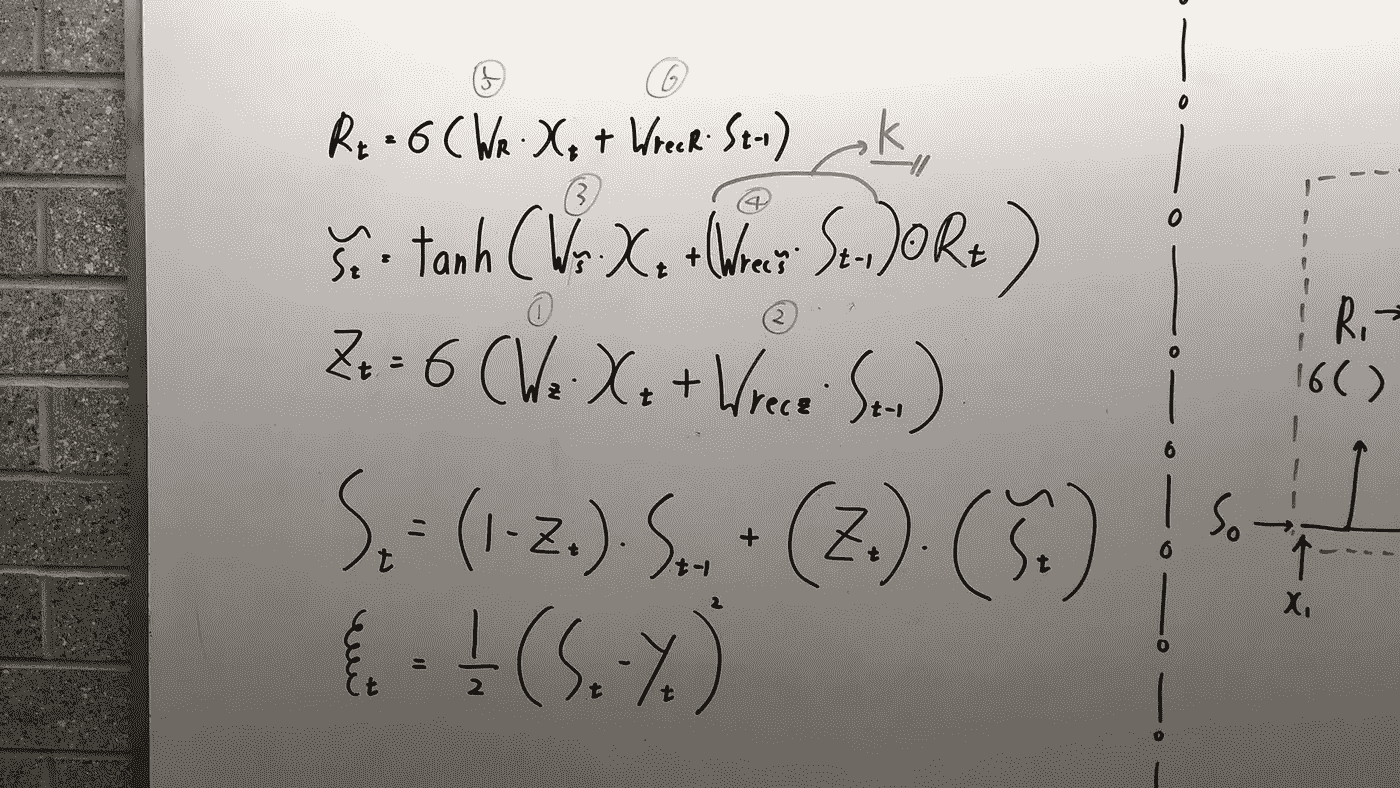 ⑤ ⑥
R_t = σ(W_R · X_t + W_recR · S_t-1)
K
③ ④
S̃_t = tanh(W_s̃ · X_t + (W_recs̃ · S_t-1) ⊙ R_t)
① ②
Z_t = σ(W_z · X_t + W_recz · S_t-1)
S_t = (1 - Z_t) · S_t-1 + (Z_t) · (S̃_t)
ξ_t = 1/2 (S_t - Y_t)²
R_1 →
σ( )
S_0 →
X_1